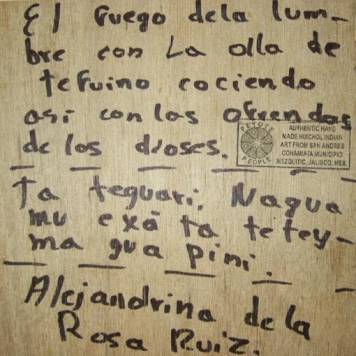 El Fuego dela lum-
bre con La olla de
tefuino cociendo
asi con las ofrendas
de los dioses.
PEYOTE PEOPLE
AUTHENTIC HAND
MADE HUICHOL INDIAN
ART FROM SAN ANDRES
COHAMIATA MUNICIPIO
MEZQUITIC, JALISCO, MEX.
Ta teguari. Nagua
mu exa ta tetey-
ma gua pini.
Alejandrina de la
Rosa Ruiz.